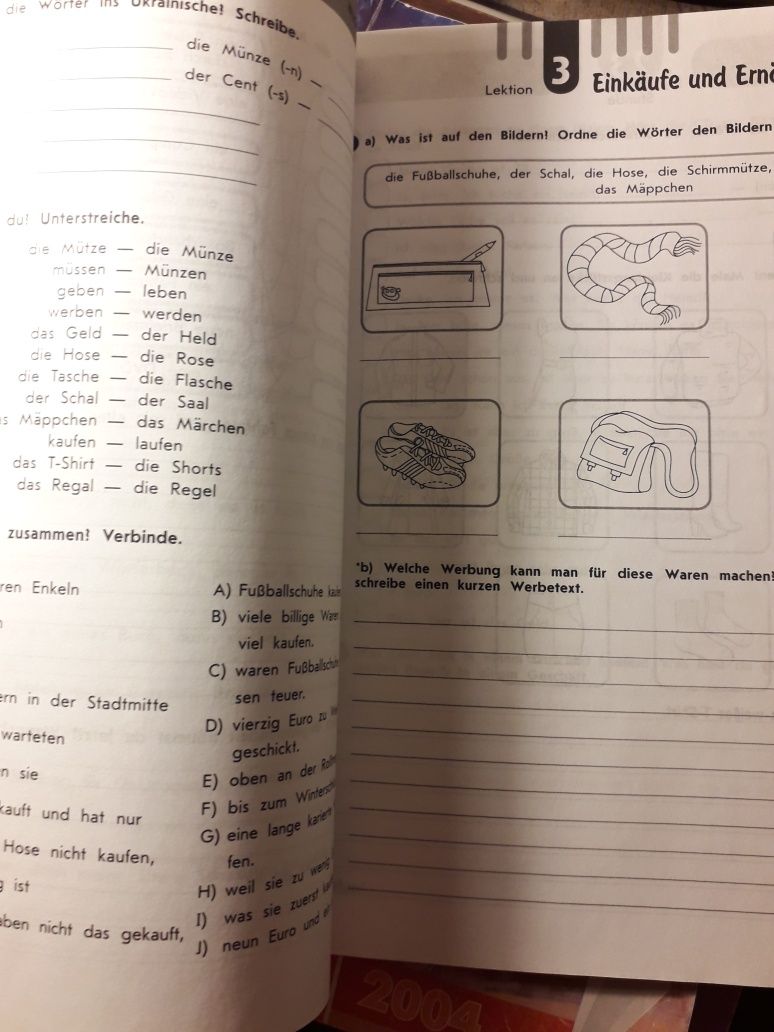 die Wörter ins Ukrainische! Schreibe.
die Münze (-n)
der Cent (-s)
du! Unterstreiche.
die Mütze — die Münze
müssen — Münzen
geben — leben
werben — werden
das Geld — der Held
die Hose — die Rose
die Tasche — die Flasche
der Schal — der Saal
Mäppchen — das Märchen
kaufen — laufen
das T-Shirt — die Shorts
das Regal — die Regel
zusammen! Verbinde.
Enkeln
in der Stadtmitte
warteten
sie
und hat nur
Hose nicht kaufen,
ist
nicht das gekauft,
A) Fußballschuhe
B) viele billige
viel kaufen.
C) waren
teuer.
D) vierzig Euro zu
geschickt.
E) oben an der
F) bis zum
G) eine lange
H) weil sie zu wenig
I) was sie zuerst
J) neun Euro und
Lektion 3 Einkäufe und
a) Was ist auf den Bildern! Ordne die Wörter den Bildern
die Fußballschuhe, der Schal, die Hose, die Schirmmütze,
das Mäppchen
*b) Welche Werbung kann man für diese Waren machen!
schreibe einen kurzen Werbetext.
2004